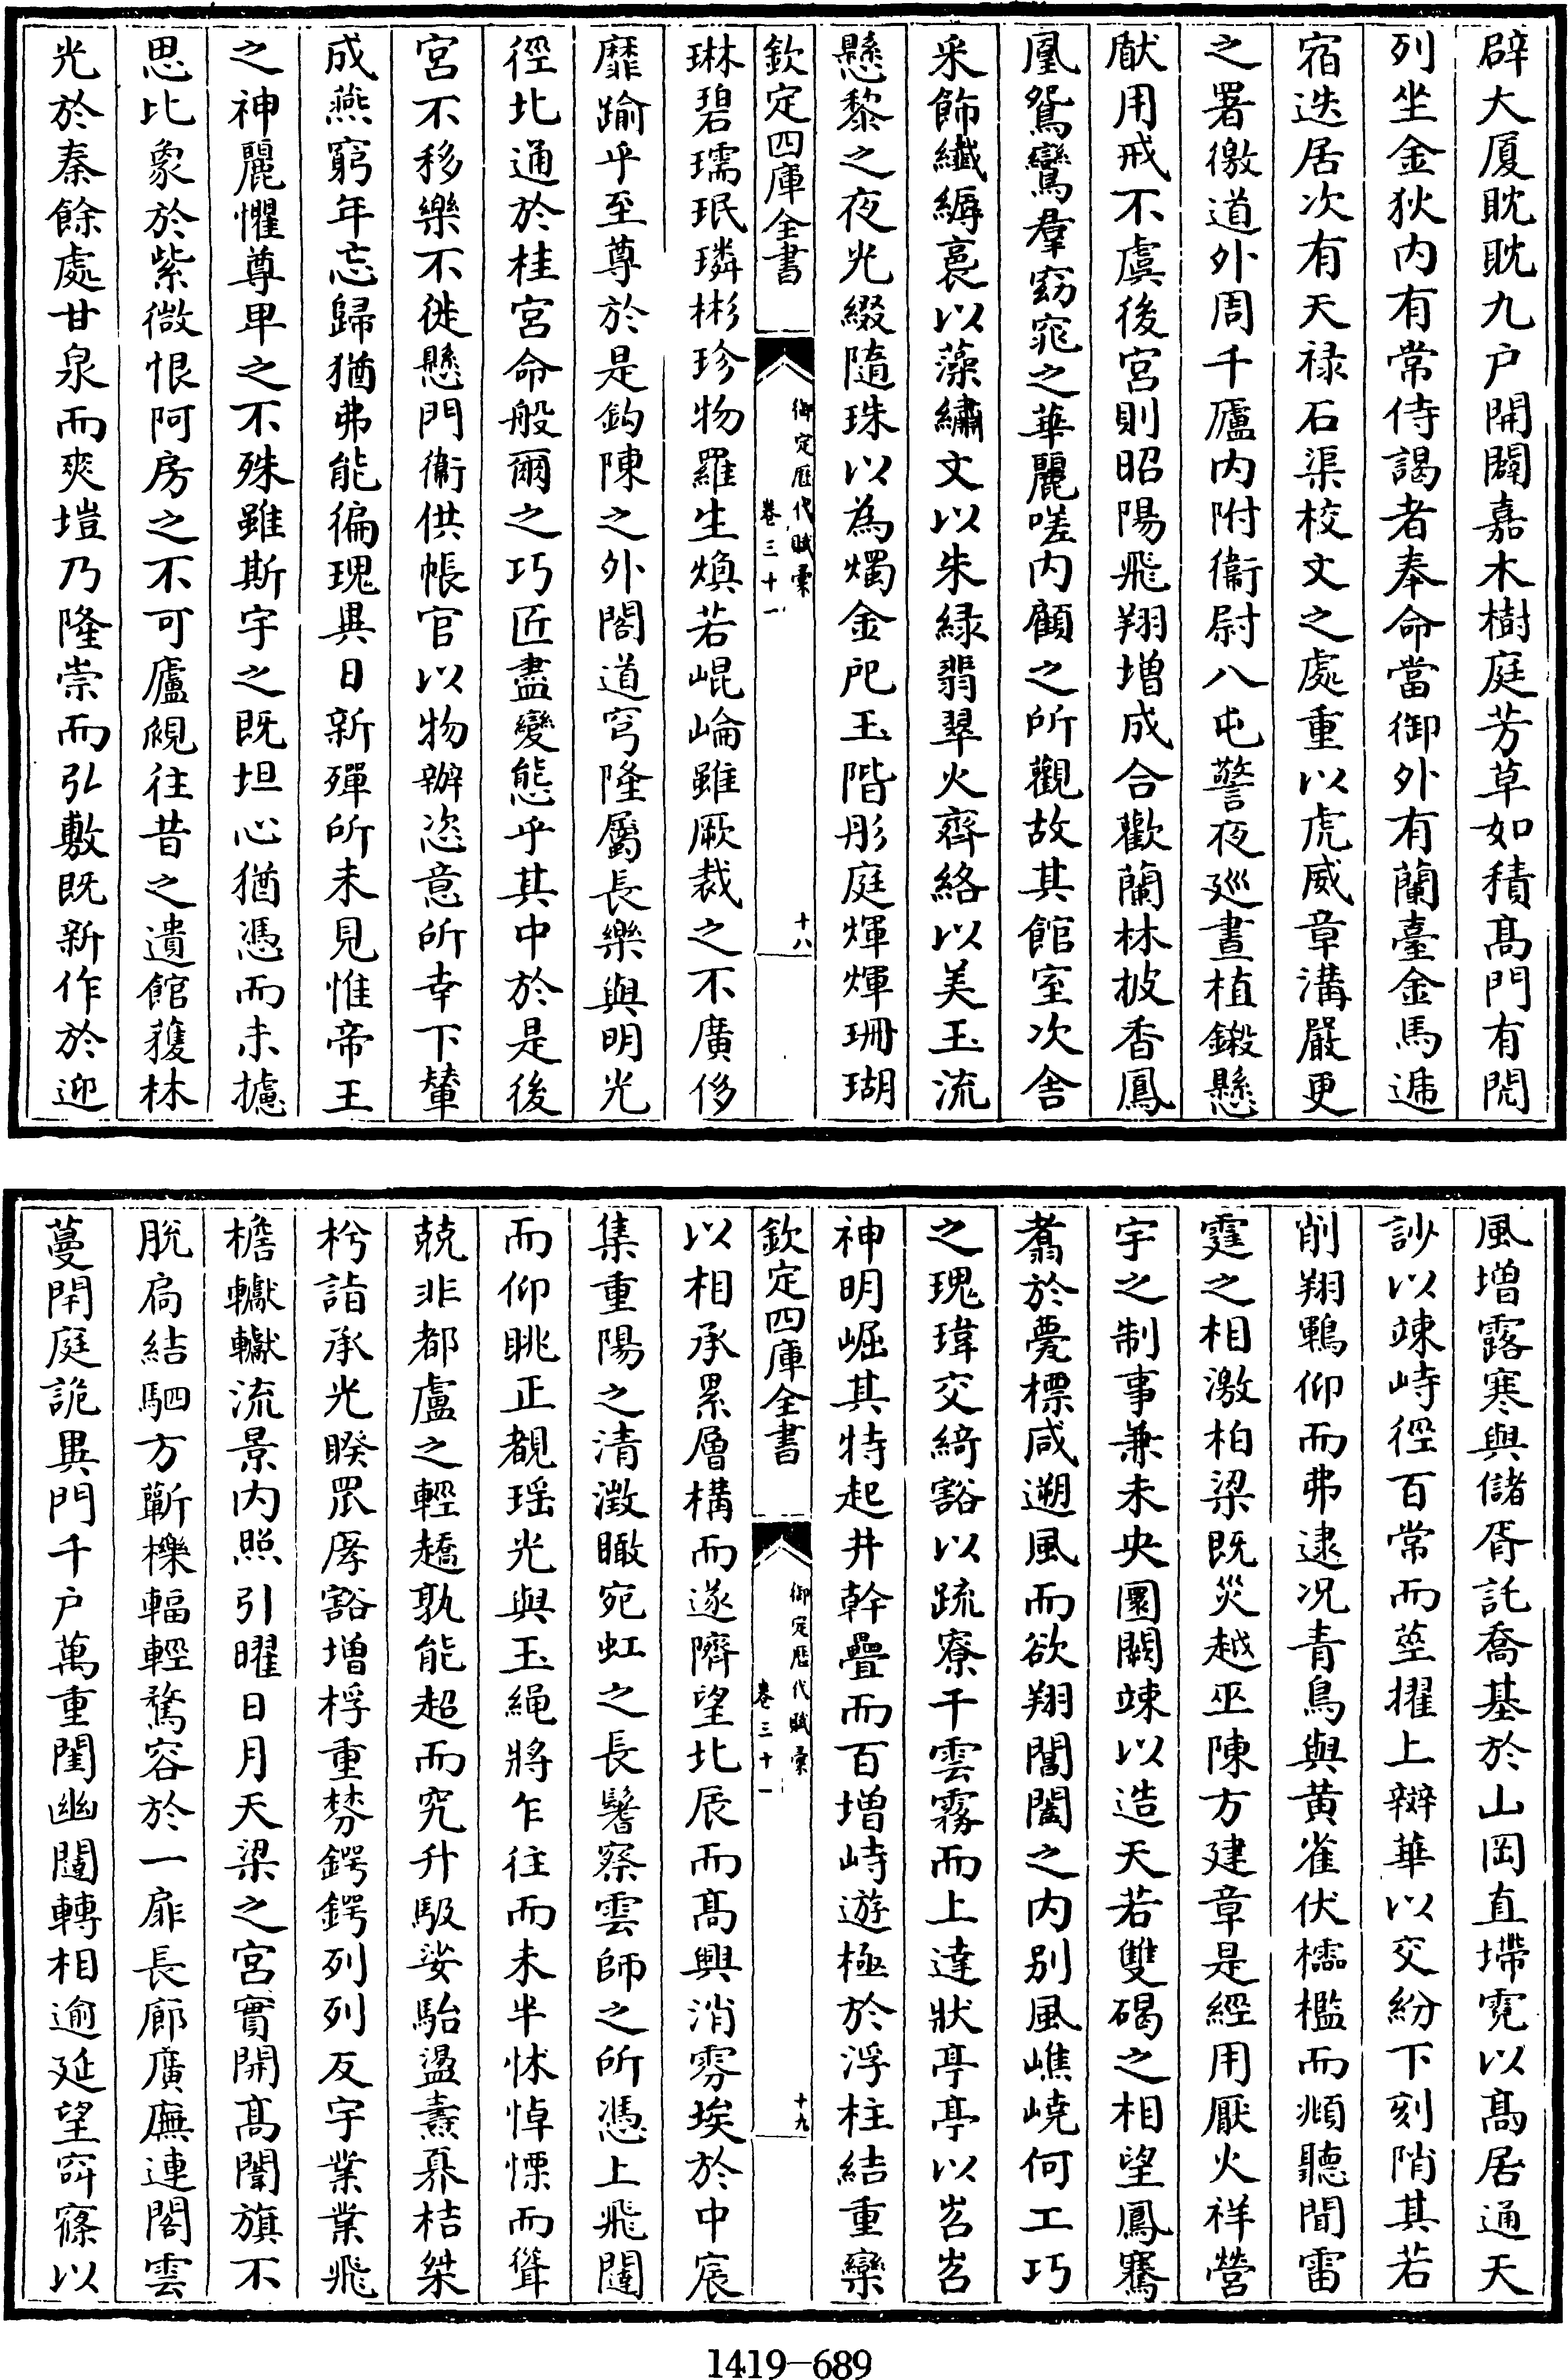 辟大厦耽耽九户開闢嘉木樹庭芳草如積髙門有閌
列坐金狄内有常侍謁者奉命當御外有蘭臺金馬遞
宿迭居次有天禄石渠校文之處重以虎威章溝嚴更
之署徼道外周千廬内附衛尉八屯警夜廵晝植鎩懸
猒用戒不虞後宫則昭陽飛翔増成合歡蘭林披香鳳
凰鴛鸞羣窈窕之華麗嗟内顧之所觀故其館室次舍
采飾纎縟裛以藻繡文以朱緑翡翠火齊絡以美玉流
懸黎之夜光綴隨珠以為燭金戺玉階彤庭煇煇珊瑚
欽定四庫全書
御定歴代賦彚
卷三十一
十八
琳碧瓀珉璘彬珍物羅生煥若崐崘雖厥裁之不廣侈
靡踰乎至尊於是鈎陳之外閣道穹隆屬長樂與明光
徑北通於桂宫命般爾之巧匠盡變態乎其中於是後
宫不移樂不徙懸門衛供帳官以物辦恣意所幸下輦
成燕窮年忘歸猶弗能徧瑰異日新殫所未見惟帝王
之神麗懼尊卑之不殊雖斯宇之既坦心猶憑而未攄
思比象於紫微恨阿房之不可廬覛往昔之遺館獲林
光於秦餘處甘泉而爽塏乃隆崇而弘敷既新作於迎
風増露寒與儲胥託喬基於山岡直墆霓以髙居通天
訬以竦峙徑百常而莖擢上辬華以交紛下刻陗其若
削翔鶤仰而弗逮况青鳥與黄雀伏櫺檻而頫聽聞雷
霆之相激柏梁既災越巫陳方建章是經用厭火祥營
宇之制事兼未央圜闕竦以造天若雙碣之相望鳳騫
翥於甍標咸遡風而欲翔閶闔之内别風嶕嶢何工巧
之瑰瑋交綺豁以疏寮干雲霧而上達狀亭亭以岧岧
神明崛其特起井幹疊而百増峙遊極於浮柱結重欒
欽定四庫全書
御定歴代賦彚
卷三十一
十九
以相承累層構而遂隮望北辰而髙興消雰埃於中宸
集重陽之清澂瞰宛虹之長鬐察雲師之所憑上飛闥
而仰眺正覩瑶光與玉繩將乍往而未半怵悼慄而聳
兢非都盧之輕趫孰能超而究升馺娑駘盪燾奡桔桀
枍詣承光睽罛庨豁増桴重棼鍔鍔列列反宇業業飛
檐轥轥流景内照引曜日月天梁之宫實開髙闈旗不
脱扃結駟方蘄櫟輻輕騖容於一扉長廊廣廡連閣雲
蔓閈庭詭異門千户萬重閨幽闥轉相逾延望䆗窱以
1419-689